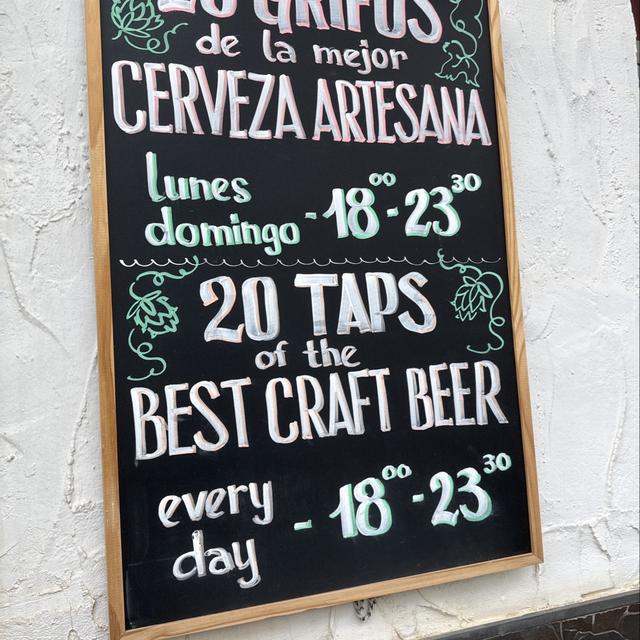 20 GRIFOS
de la mejor
CERVEZA ARTESANA
lunes
domingo - 18⁰⁰ - 23³⁰
20 TAPS
of the
BEST CRAFT BEER
every
day - 18⁰⁰ - 23³⁰